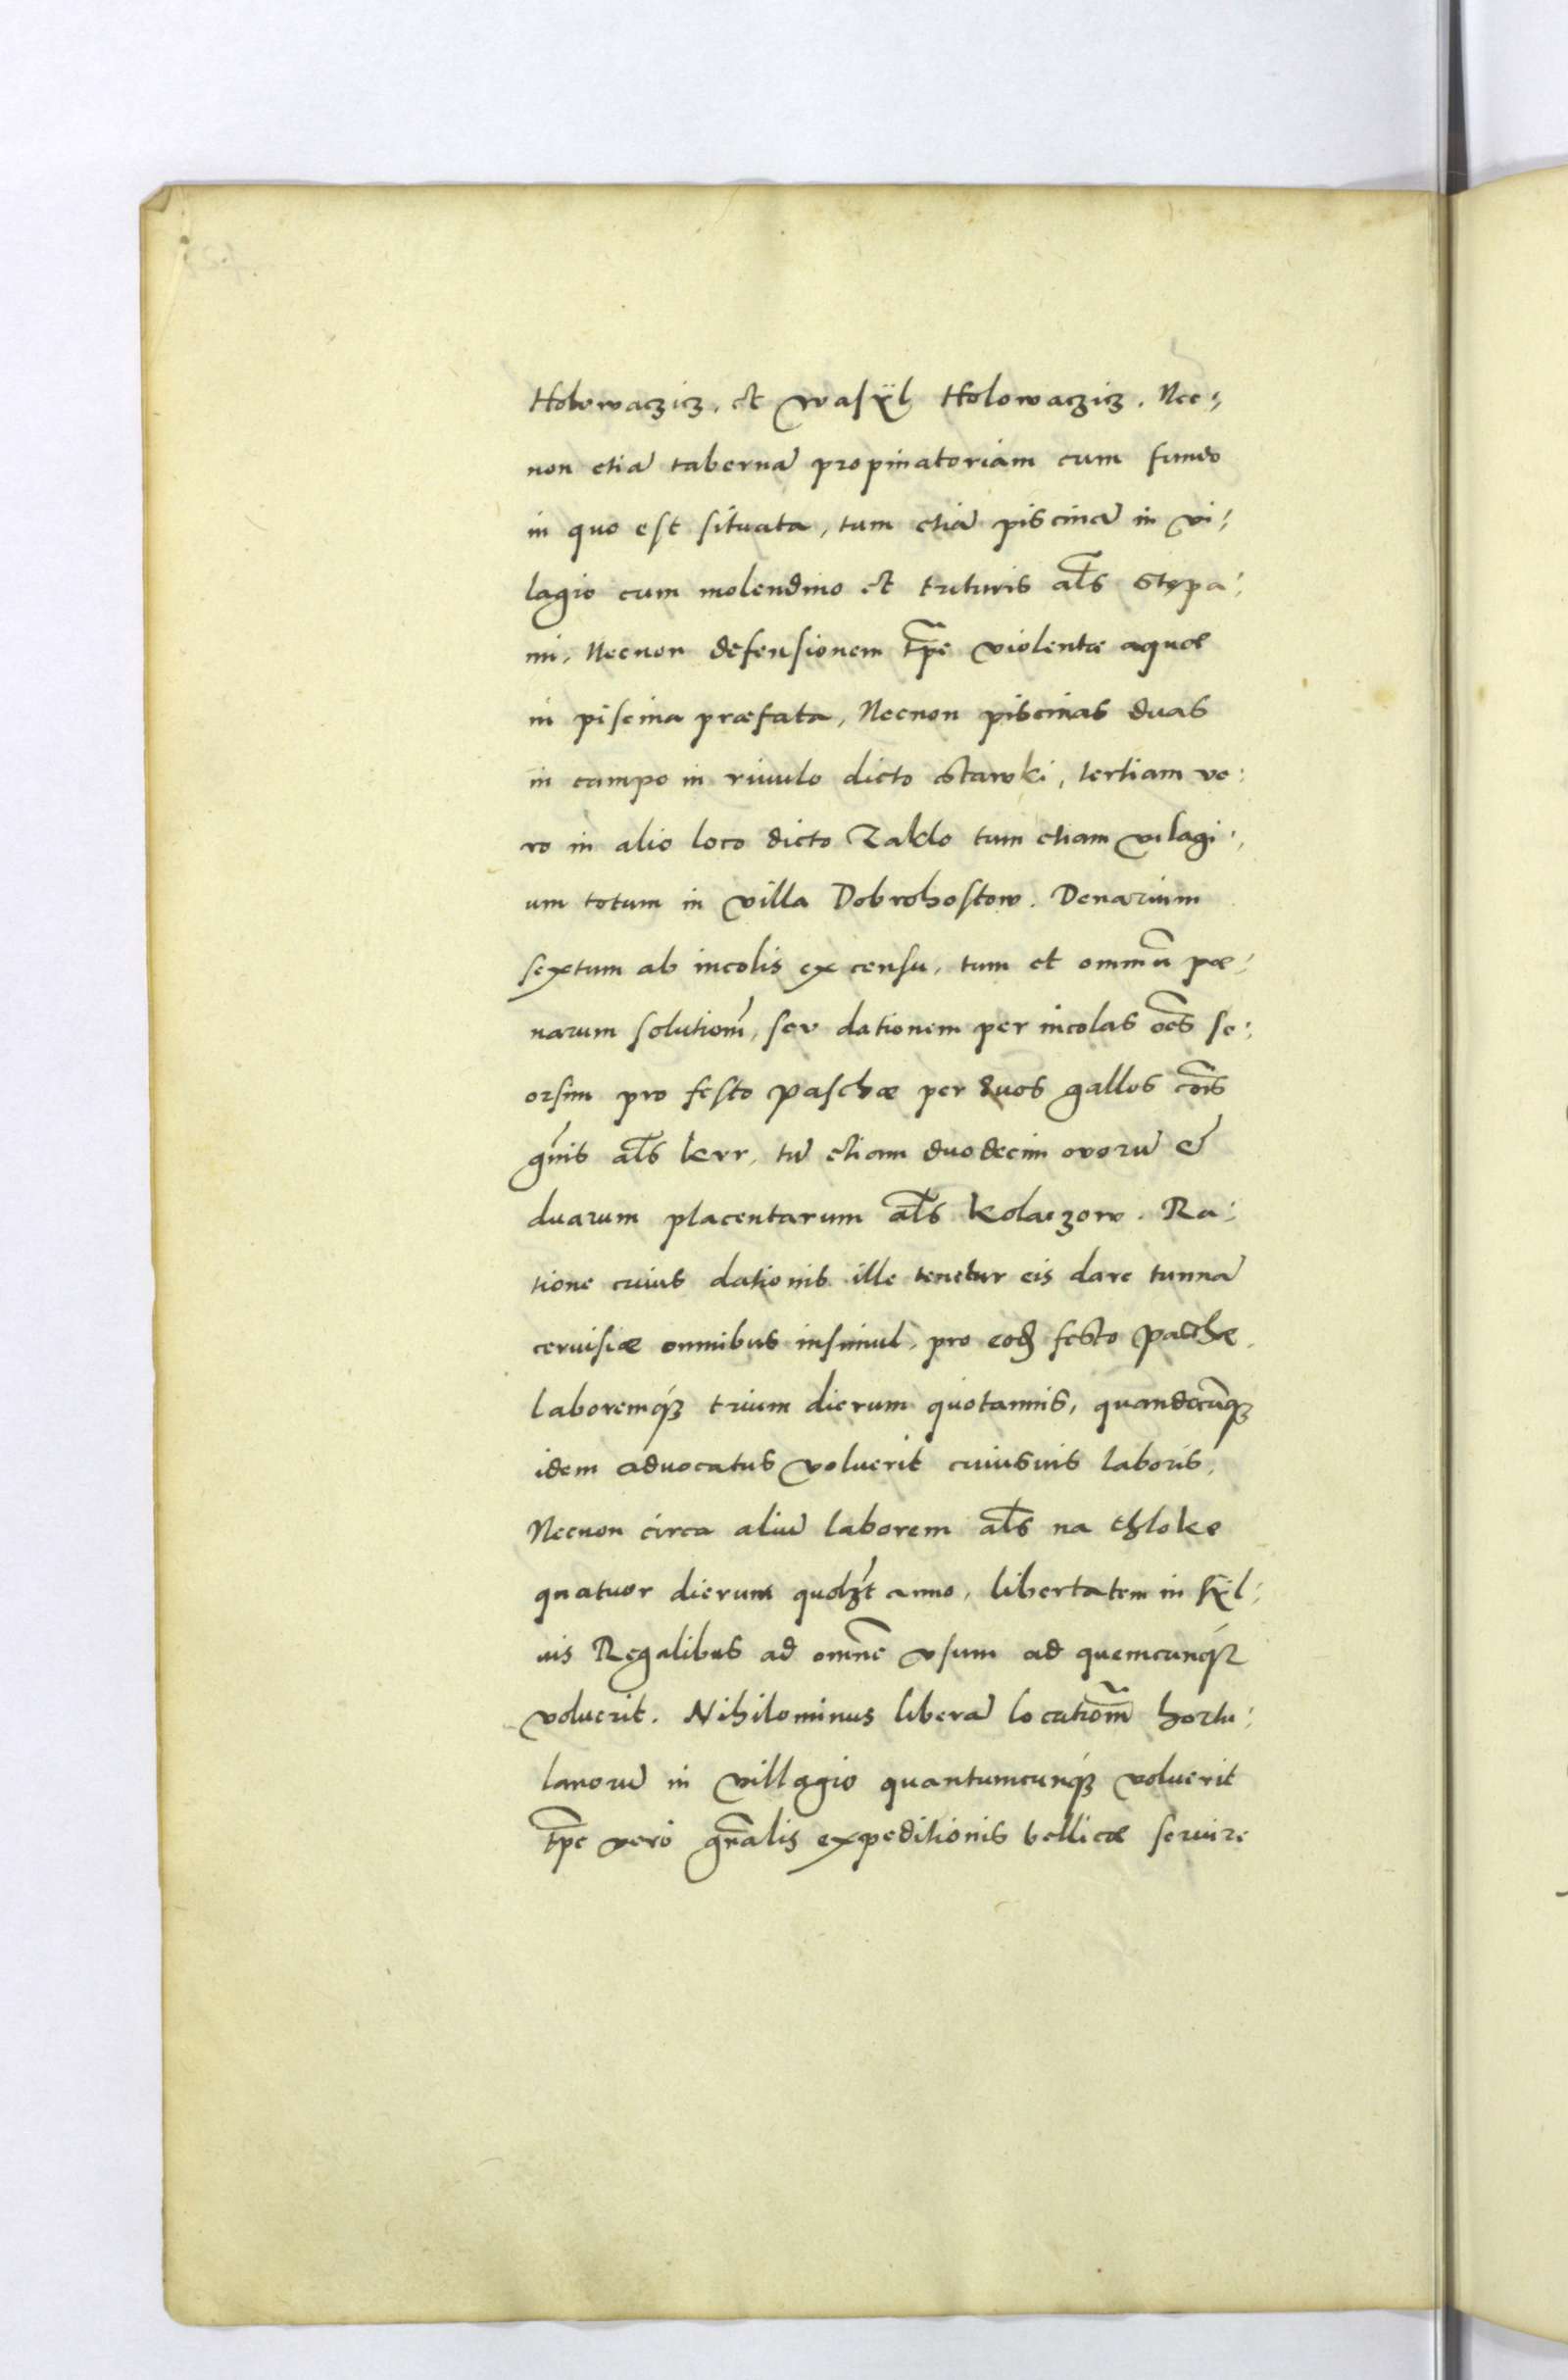 Holowaczicz, et Wasÿl Holowaczicz. Nec¬
non etiã tabernã propinatoriam cum fundo
in quo est situata, tum etiã piscinã in vi¬
lagio cum molendino et trituris al̃s stępa¬
mi, Necnon defensionem tp̃e violentæ aquæ
in piscina præfata, Necnon piscinas duas
in campo in riuulo dicto Stawki, tertiam ve¬
ro in alio loco dicto Zaklo tum etiam vilagi¬
um totum in villa Dobrohostow. Denarium
sextum ab incolis ex censu, tum et omniũ pæ¬
narum solutiom̃, seu dationem per incolas oẽs se¬
orsim pro festo Paschæ per duos gallos
gñis al̃s kur, tũ etiam duodecim ovorũ &
duarum placentarum al̃s kolaczow. Ra¬
tione cuius dationis ille tenetur eis dare tunnã
cervisiæ omnibus insimul, pro eod̃ festo Paschæ.
laboremq́ȝ trium dierum quotannis, quandocũqȝ
idem aduocatus voluerit cuiusuis laboris,
Necnon circa aliũ laborem al̃s na thloke
quatuor dierum quolȝt anno, libertatem in sÿl¬
uis Regalibus ad omnẽ vsum ad quemcunq́ȝ
voluerit. Nihilominus liberã locatiom̃ hortu¬
lanorũ in villagio quantumcunq́ȝ voluerit
tp̃e verò gñalis expeditionis bellicæ seruire